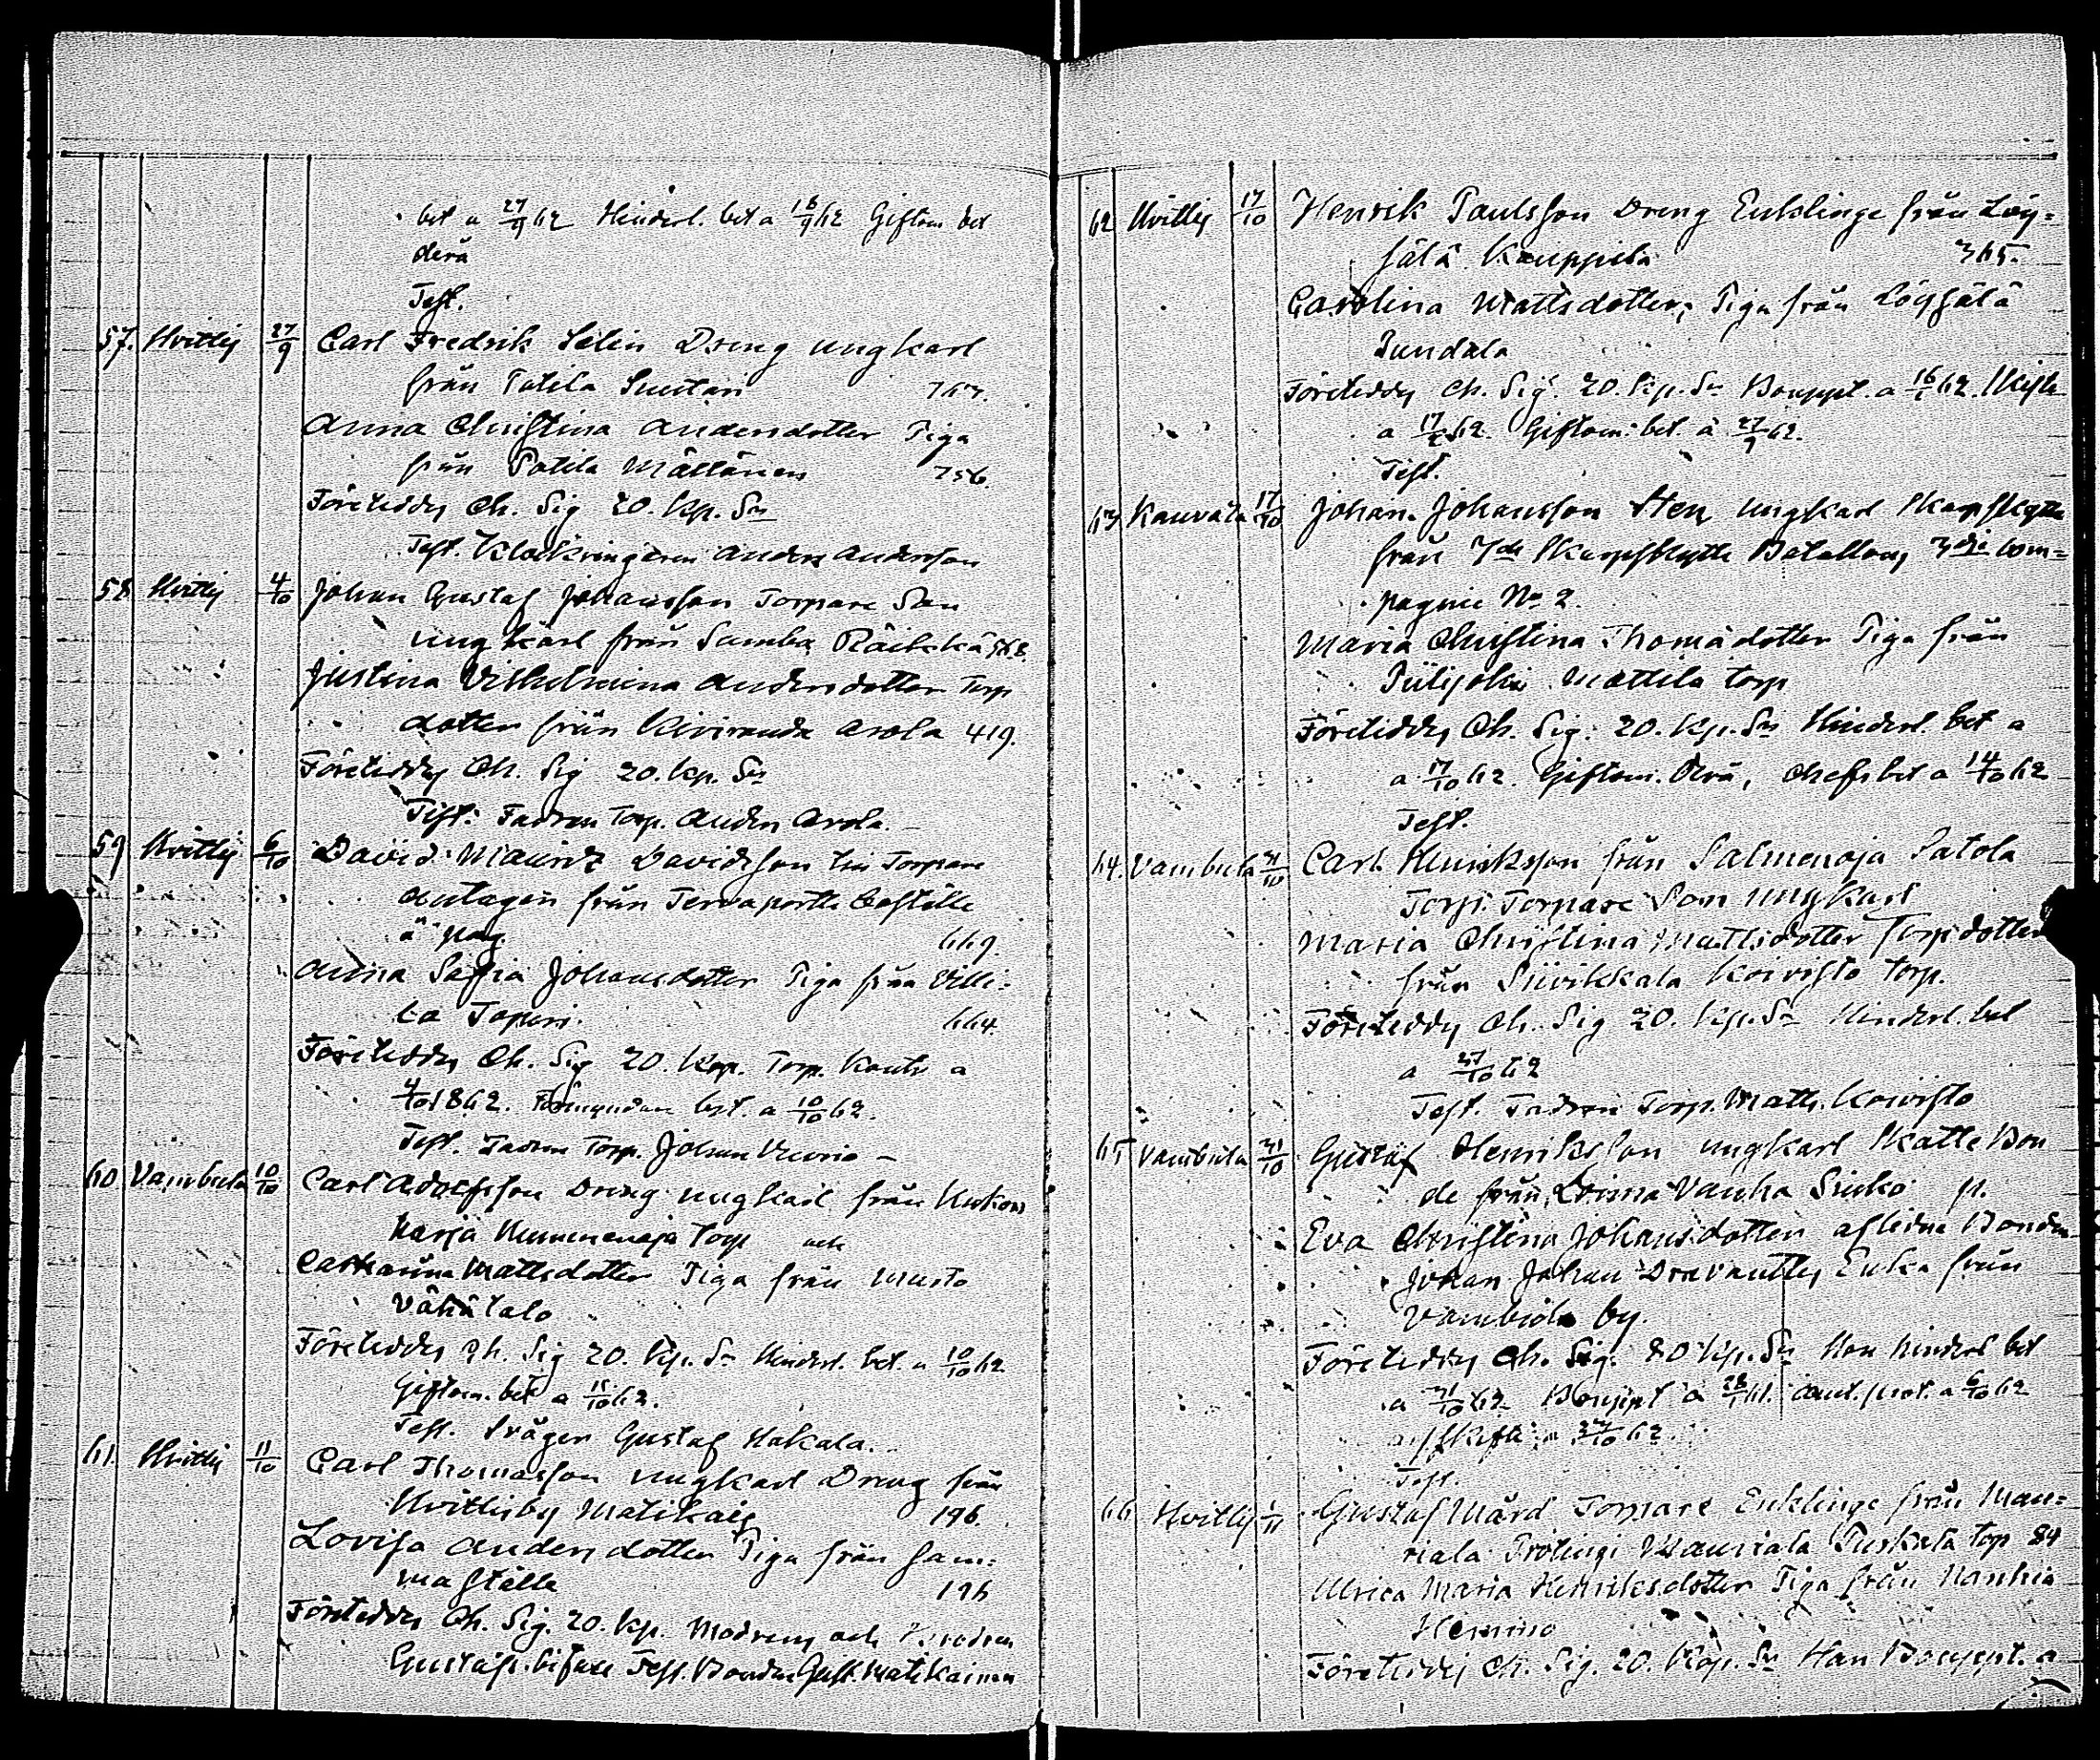 bet a 27/9 62 Hinderl. bet a 18/9 62 Giftom det
derå
Test.
57. Hvittis 27/9 Carl Fredrik Selin Dreng ungkarl
från Potila Suutari 767.
Anna Christina Andersdotter Piga
från Potila Mällänen 756.
Företeddes Ch. Sig 20. Kp. Sr
Test. Klockringaren Anders Andersson
58 Hvittis 4/10 Johan Gustaf Johansson Torpare Son
ungkarl från Samba Räikkä 568.
Justina Vilhelmina Andersdotter Torp
dotter från Kiviranda Arola 419.
Företeddes Ch. Sig 20. Kp. Sr
Test: Fadren Torp. Anders Arola.
59 Hvittis 6/10 David Mauritz Davidsson till Torpare
antagen från Tervaportti Boställe
ä pag. 669.
Anna Safia Johansdotter Piga från Villi=
la Tapuri. 664.
Företeddes Ch. Sig 20. Kop. Torp. Kontr a
4/10 1862. Förmyndare bet. a 10/10 62.
Test. Fadren Torp. Johan Vuorio –
60 Vambula 10/10 Carl Adolfsson Dreng ungkarl från Huhkon
harja Nummenoja Torp och
Catharina Mattsdotter Piga från Musto
Vähätalo
Företeddes Ch. Sig 20. Kp. Sr Hinderl. bet. a 10/10 62
Giftom. bet a 11/10 62.
Test. Svågen Gustaf Hakala.
61. Hvittis 11/10 Carl Thomasson ungkarl Dreng från
Hvittisby Matikais 196.
Lovisa Andersdotter Piga från sam=
ma ställe 196
Företeddes Ch. Sig. 20. Kp. Modrens och
Gustafs. bifare Test. Bonden Gust. Matikainen
62 Hvittis 17/10 Henrik Paulsson Dreng Enklinge från Löy=
sälä Kauppila 365.
Carolina Mattsdotter, Piga från Löysälä
Jundala
Företeddes Ch. Sig. 20. Kp. Sr Bouppt. a 16/ 62. Skifte
a 17/ 62. Giftom. bet. a 27/9 62.
Test.
63 Kauvatsa 17/10 Johan Johansson Sten ungkarl Skarpskytte
från 7de Skarpskytte Batallons 3dje Com=
pagnie No 2.
Maria Christina Thomadotter Piga från
Piilijoki Mattila torp
Företeddes Ch. Sig: 20. Kp. Sr Hinderl. bet a
a 17/10 62. Giftom. Derå, Chefs bet a 14/10 62
Test.
64. Vambula 31/10 Carl Henriksson från Salmenoja Patola
Torp. Torpare Son ungkarl
Maria Christina Mattsdotter Torpdotter
från Siivikkala Koivisto torp.
Företeddes Ch. Sig 20. Kp. Sr Hinderl. bet
a 27/10 62
Test. Fadren Torp. Matts. Koivisto
65 Vambula 31/10 Gustaf Henriksson ungkarl Skatte Bon
de från Loima Vanha Sirko p.
Eva Christina Johansdotter aflidne Bonden
Johan Johan Enka från
Vambula by.
Företeddes Ch. Sig. 20 Kp. Sr Hon hinderl bet
a 31/10 62 Bouppt a 28/ 61. aut. prot. a 6/10 62
a 27/10 62.
Test.
66 Hvittis 1/11 Gustaf Mård Torpare Enklinge från Mau=
riala Mauriala Tuskala torp 84
Ulrica Maria Henriksdotter Piga från Nanhia
Hemmo
Företeddes Ch. Sig. 20. Kop. Sr Han Bouppt. a